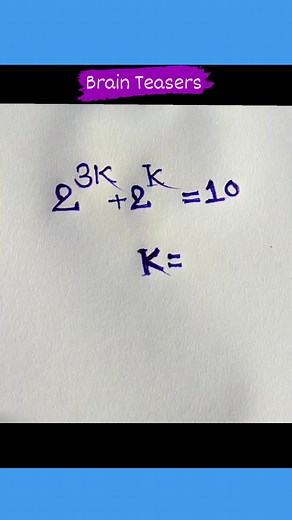 Brain Teasers
2^{3K}+2^{K}=10
K=